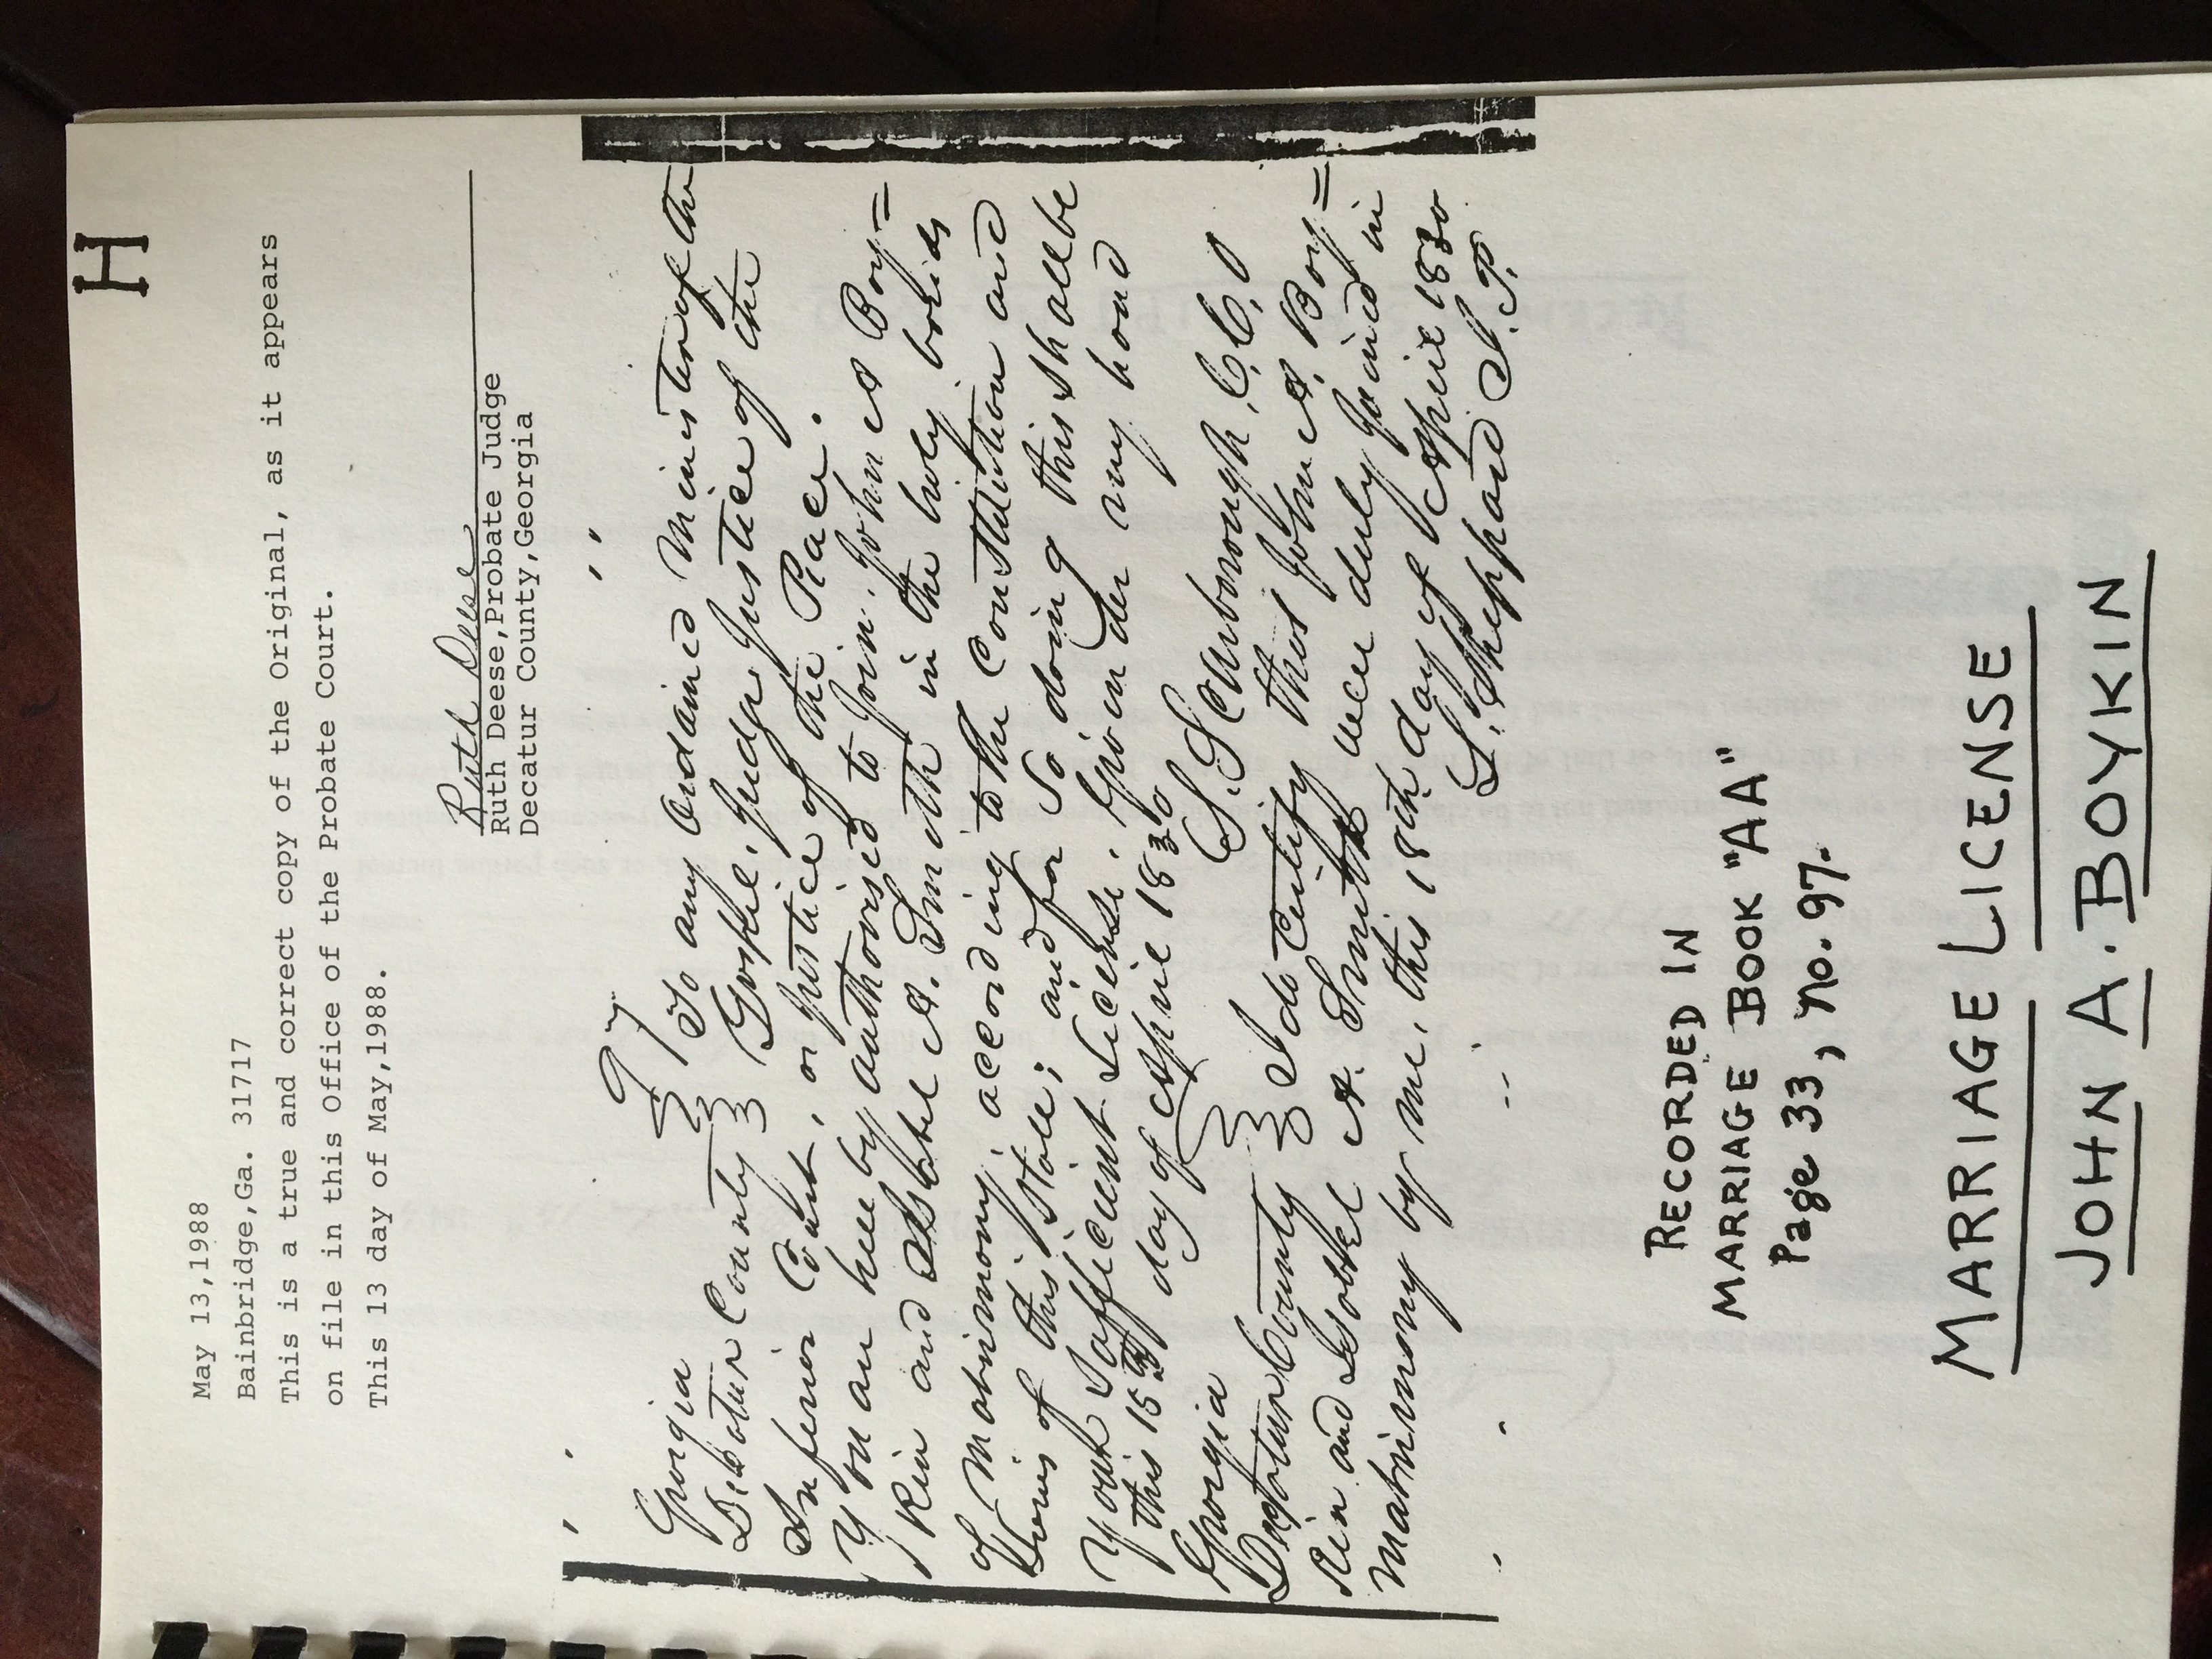 H
May 13,1988
Bainbridge,Ga. 31717
This is a true and correct copy of the Original, as it appears
on file in this Office of the Probate Court.
This 13 day of May,1988.
Ruth Deese
Ruth Deese,Probate Judge
Decatur County,Georgia
97
Georgia
Decatur County } To any Ordained Minister of the
Gospel. Judge, Justice of the
Inferior Court, or Justice of the Peace.
You are hereby authorised to Join. John A Boy=
kin and Isabel A. Smith in the holy bonds
of Matrimony, according to the Constitution and
Laws of this State; and for So doing this shall be
Your Sufficient License. Given under my hand
this 15th day of April 1830
S Scarborough C.C.O
Georgia
Decatur County } I do Certify that John A. Boy=
kin and Isabel A. Smith were duly Joined in
matrimony by me, this 18th day of April 1830
S. Sheppard J.P.
RECORDED IN
MARRIAGE BOOK "AA"
Page 33, no. 97.
MARRIAGE LICENSE
JOHN A. BOYKIN